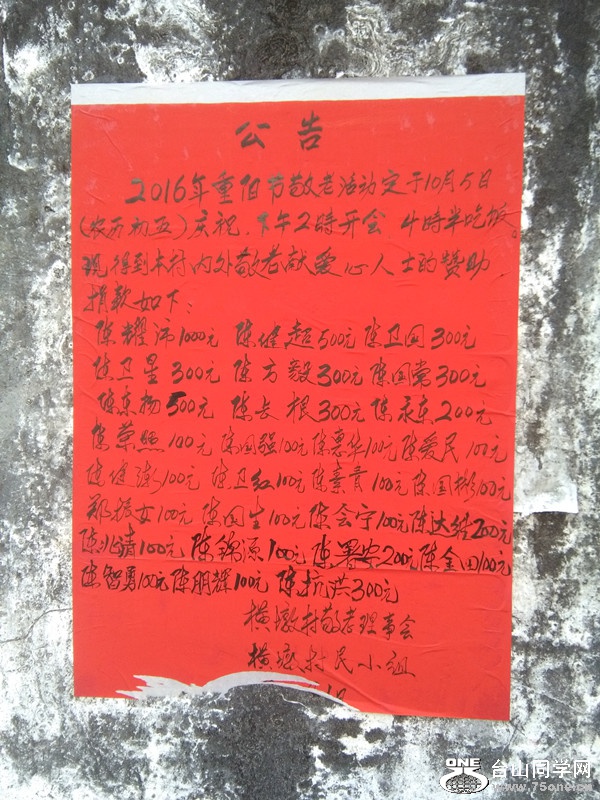 公告
2016年重阳节敬老活动定于10月5日
(农历初五)庆祝.下午2時开会 4時半吃饭。
现得到本村内外敬老献爱心人士的赞助
捐款如下:
陈耀沛1000元 陈健超500元 陈卫国300元
陈卫星300元 陈方毅300元 陈国党300元
陈东扬500元 陈长根300元 陈永东200元
陈荣照100元 陈国强100元 陈惠华100元 陈爱民100元
陈健澎100元 陈卫红100元 陈素青100元 陈国彬100元
郑振女100元 陈国生100元 陈会宁100元 陈达 200元
陈兆清100元 陈锦源100元 陈 安200元 陈金田100元
陈智勇100元 陈朋辉100元 陈抗洪300元
横墩村敬老理事会
横墩村民小组
ONE
台山同学网
www.75one.cn